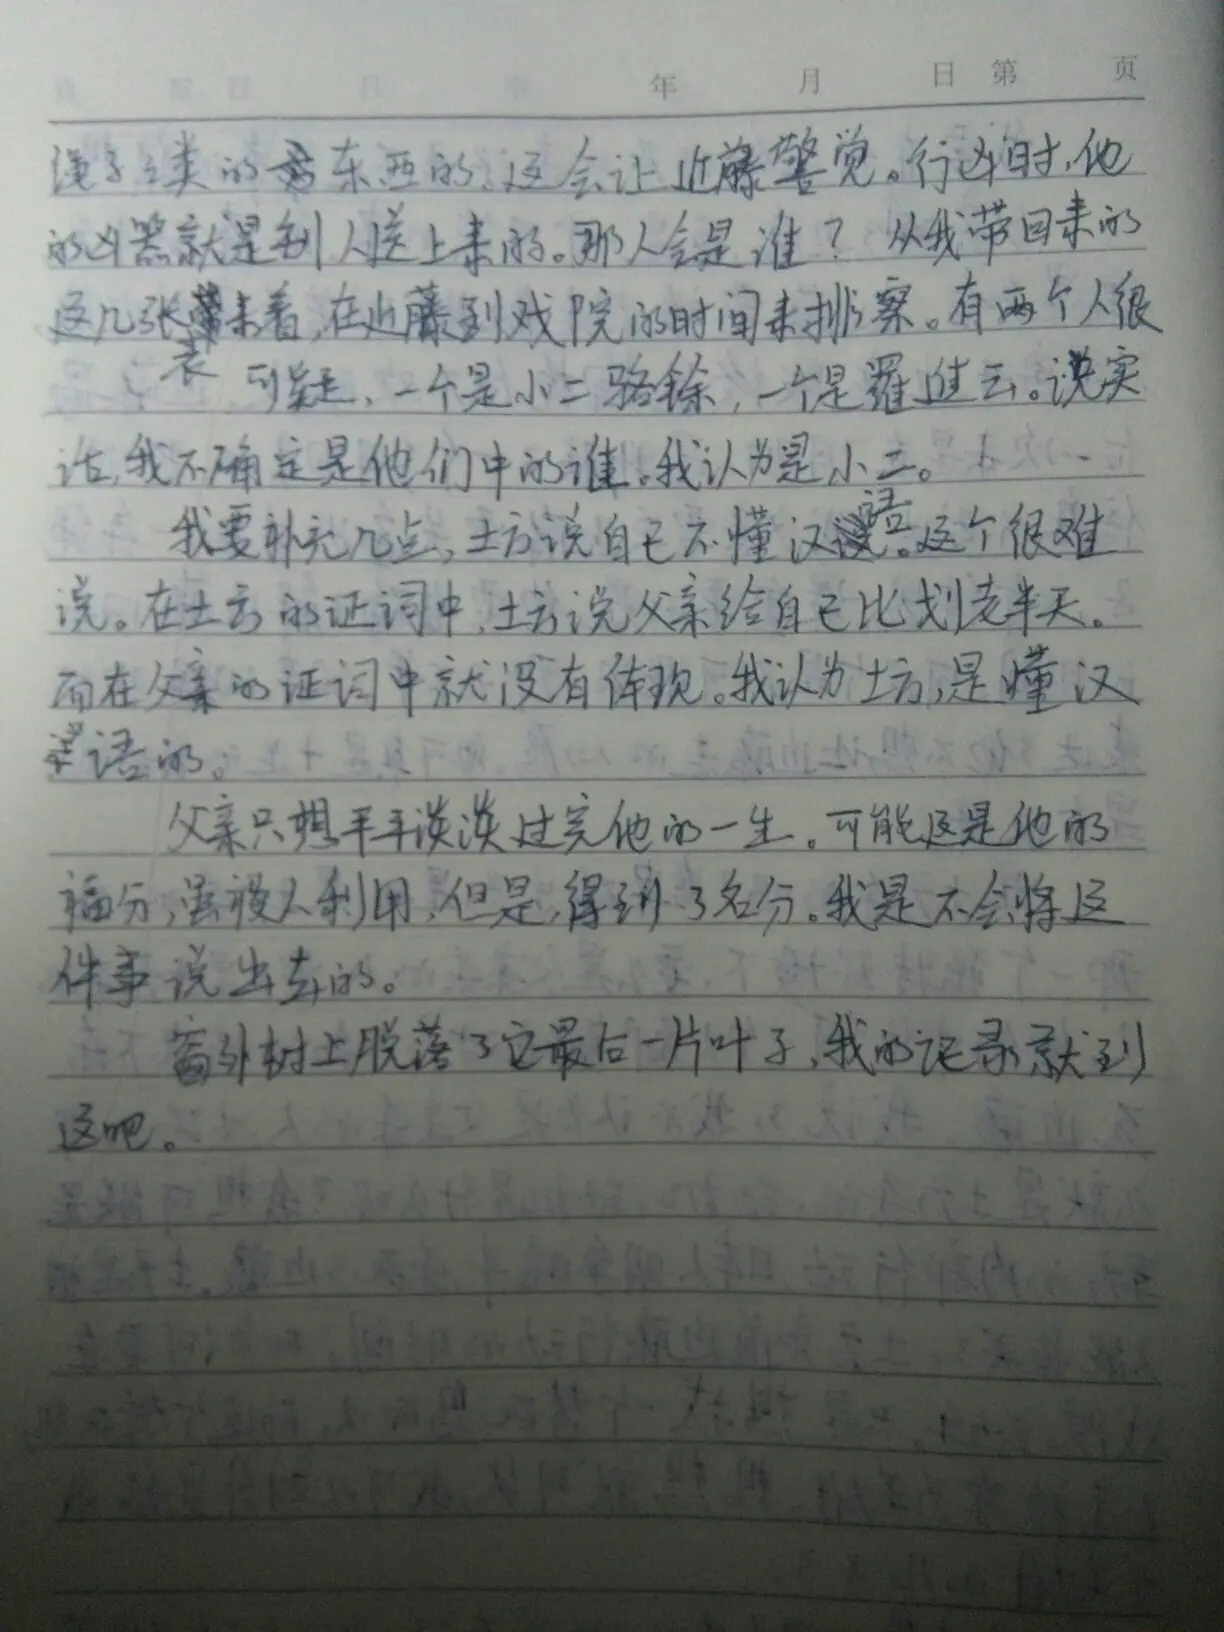 年 月 日 第 页
绳子之类的东西的，这会让近藤警觉。行凶时，他
的凶器就是别人送上来的。那人会是谁？从我带回来的
这几张表来看，在近藤到戏院的时间来排察。有两个人很
可疑，一个是小二骆馀，一个是罗进云。说实
话，我不确定是他们中的谁。我认为是小二。
我要补充几点，土方说自己不懂汉语。这个很难
说。在土方的证词中，土方说父亲给自己比划老半天。
而在父亲的证词中就没有体现。我认为土方，是懂汉
语的。
父亲只想平平淡淡过完他的一生。可能这是他的
福分，虽被人利用，但是，得到了名分。我是不会将这
件事说出去的。
窗外树上脱落了它最后一片叶子，我的记录就到
这吧。